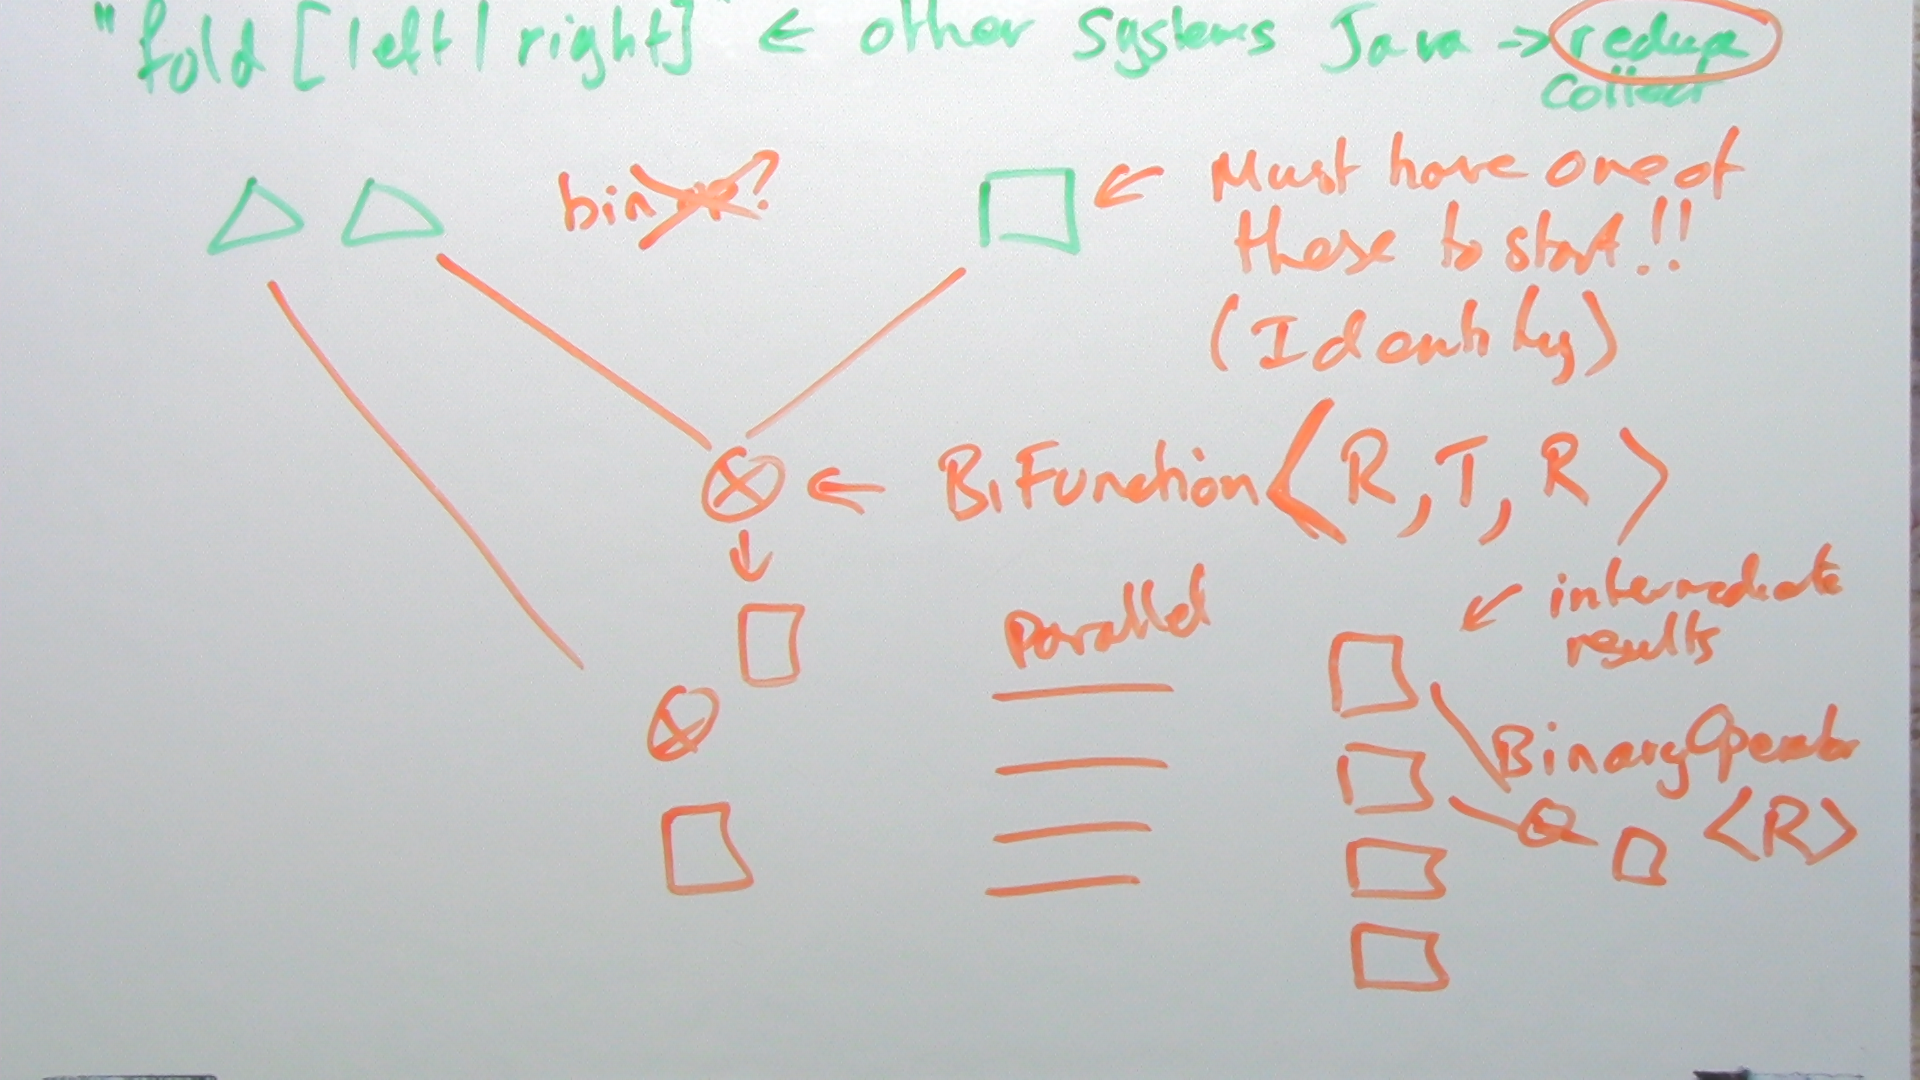 "fold [left|right]" ← other systems Java → reduce
collect
bin ?
← Must have one of
these to start!!
(Identity)
← BiFunction<R,T,R>
Parallel
intermediate
results
BinaryOperator
<R>